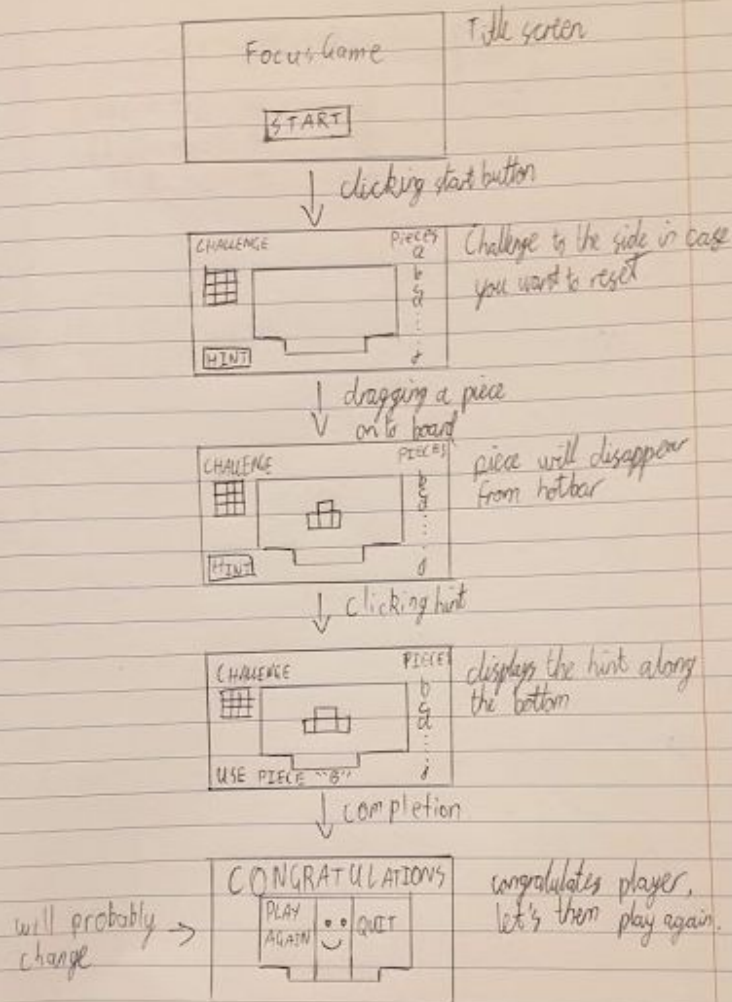 Title screen
FocusGame
START
clicking start button
CHALLENGE
PIECES
a
b
c
d
HINT
Challenge to the side in case
you want to reset
dragging a piece
onto board
CHALLENGE
PIECES
b
c
d
HINT
piece will disappear
from hotbar
clicking hint
CHALLENGE
PIECES
b
c
d
j
USE PIECE "B"
displays the hint along
the bottom
completion
CONGRATULATIONS
PLAY
AGAIN
QUIT
will probably
change
congratulates player,
let's them play again.